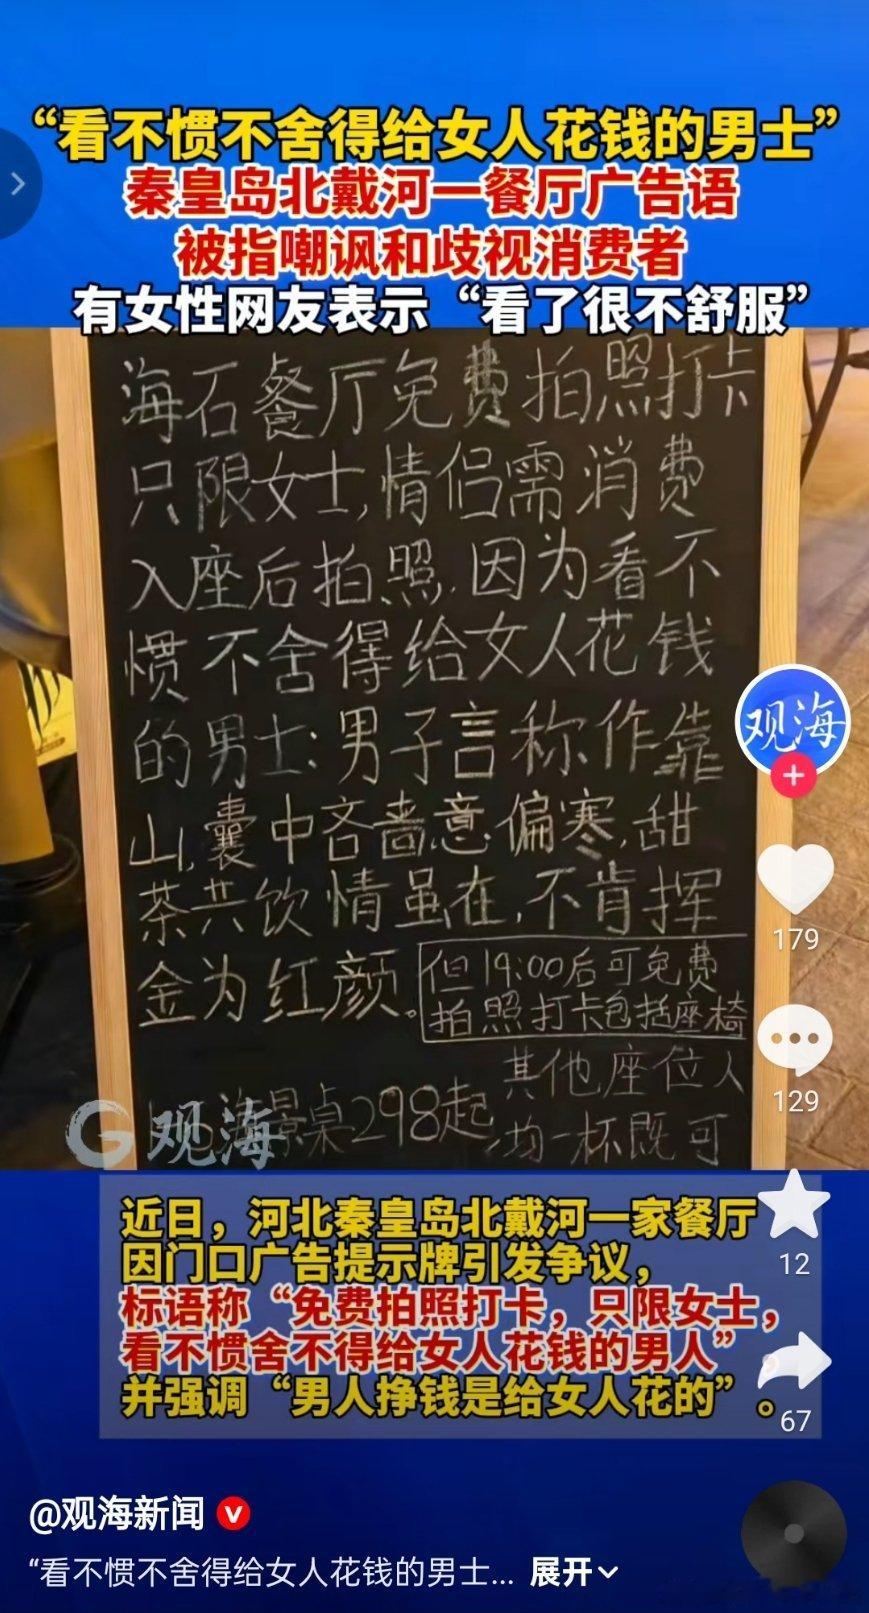 “看不惯不舍得给女人花钱的男士”
秦皇岛北戴河一餐厅广告语
被指嘲讽和歧视消费者
有女性网友表示“看了很不舒服”
海石餐厅免费拍照打卡
只限女士,情侣需消费
入座后拍照.因为看不
惯不舍得给女人花钱
的男士:男子言称作靠
山,囊中吝啬意偏寒,甜
茶共饮情虽在,不肯挥
金为红颜。
但19:00后可免费
拍照打卡包括座椅
景桌298起
其他座位人
均一杯既可
观海
观海
179
129
12
67
近日，河北秦皇岛北戴河一家餐厅
因门口广告提示牌引发争议，
标语称“免费拍照打卡，只限女士，
看不惯舍不得给女人花钱的男人”，
并强调“男人挣钱是给女人花的”。
@观海新闻
“看不惯不舍得给女人花钱的男士... 展开